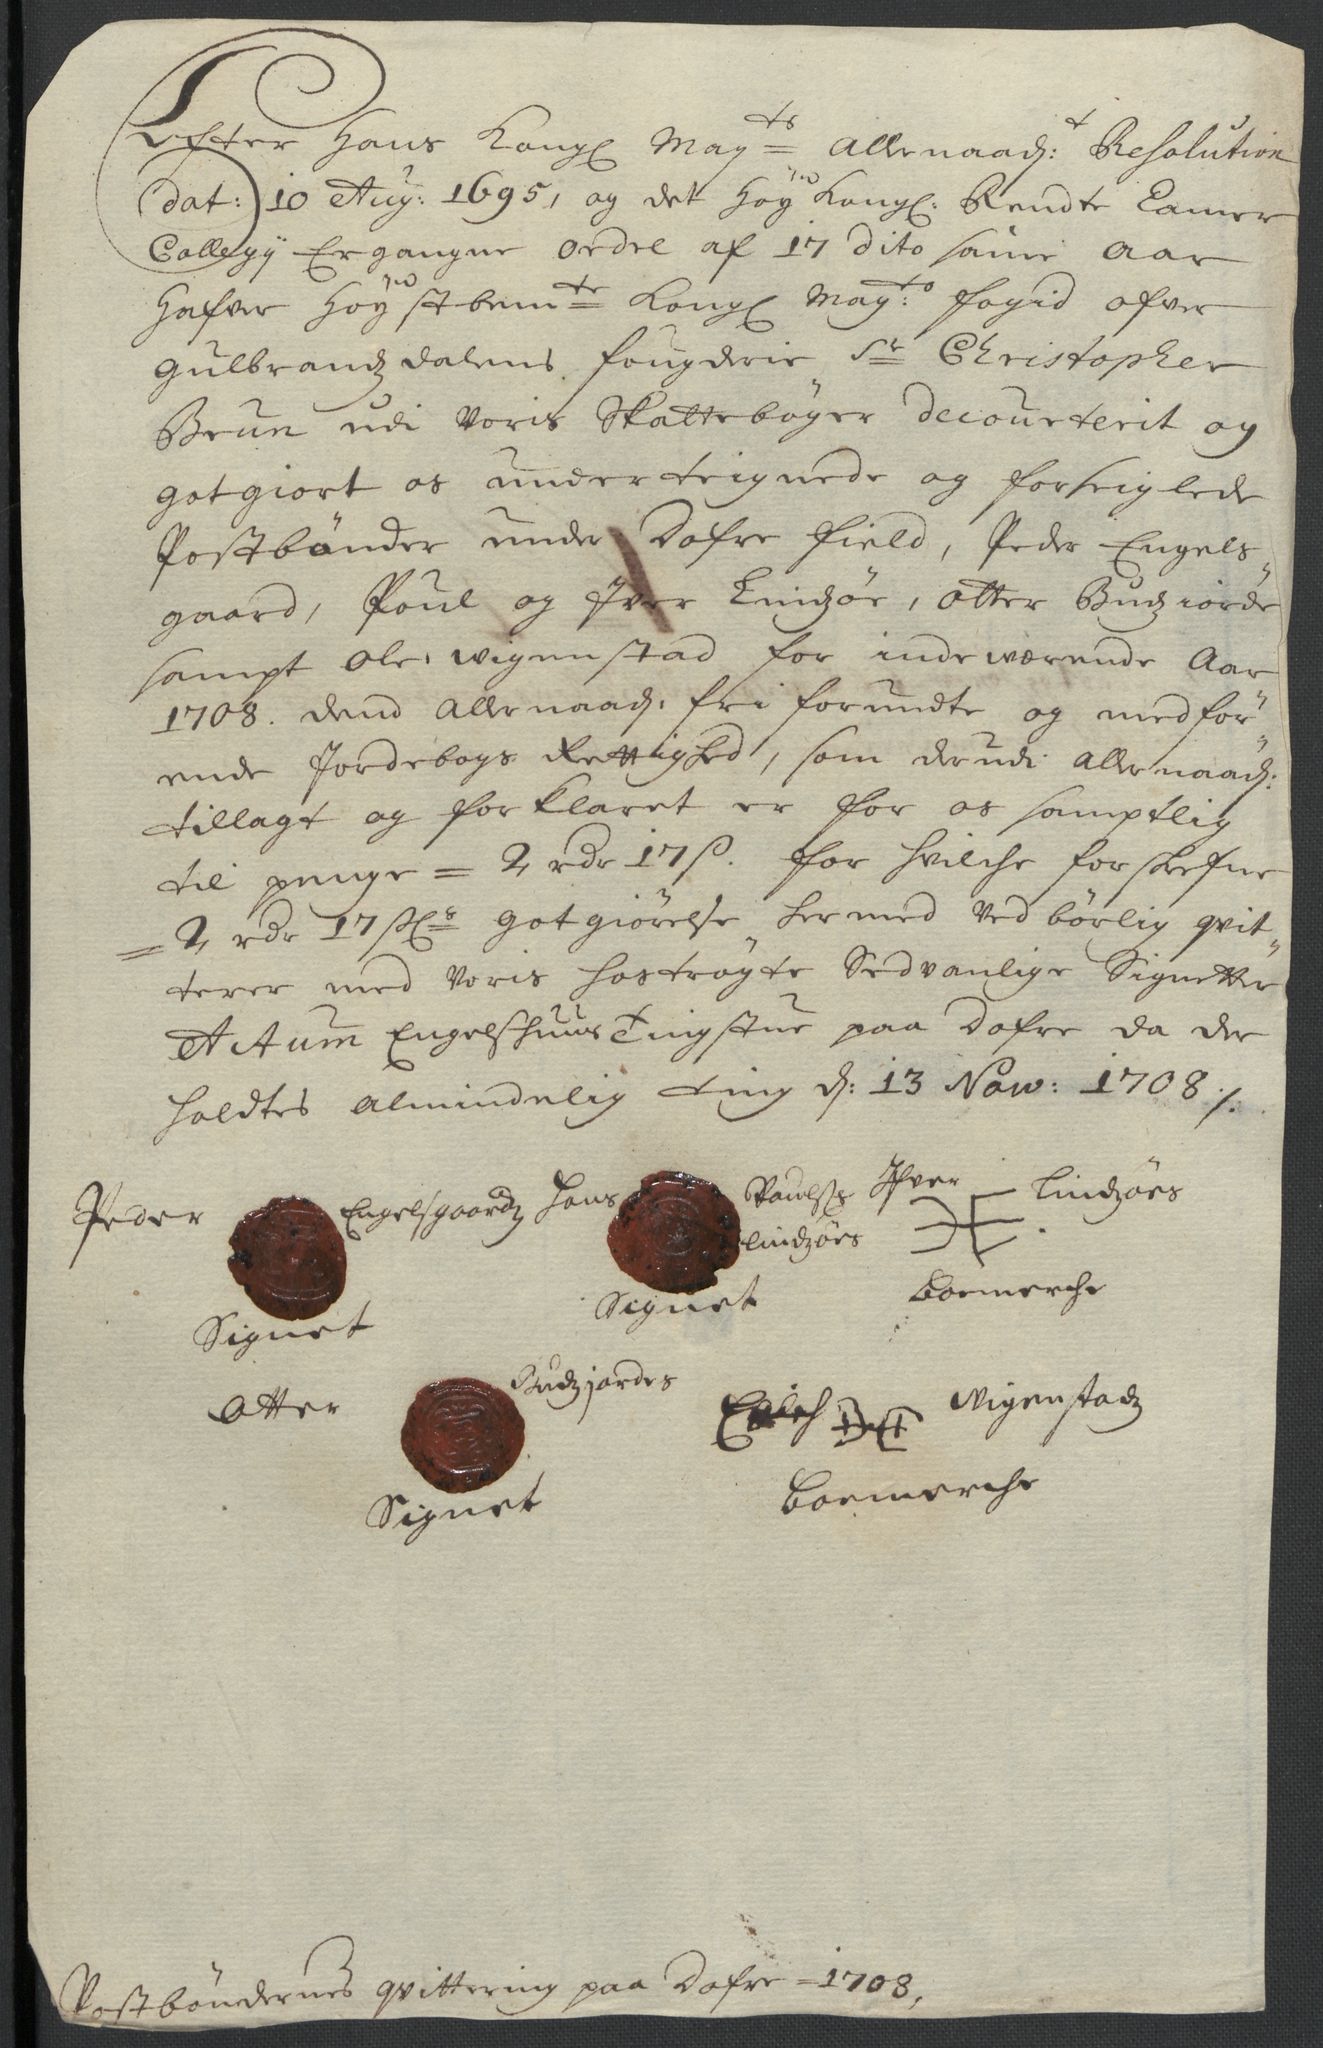 Efter Hans Kongl May:ts allernaad:t Resolution
dat: 10 Aug: 1695, og det høy Kongl: Rendte Camer
Collegij Ergangne ordre af 17 dito samme aar
hafver høystbemte Kongl May:ts fogid ofver
Gulbrandzdalens fougderie Sr Christopher
Brun udi voris Skattebøger decourterit og
gotgiort os underteignede og forseiglede
Postbønder under Dofre field, Peder Engels-
gaard, Poul og Iver Lindzøe, Otter Budziorde
sampt Ole Wigenstad for indeværende Aar
1708. dend allernaad. fri forundte og medfør-
ende Jordebogs Rettighed, som derudi allernaad:
tillagt og forklaret er for os samptlig
til penge = 2 rdr 17 ß. for hvilche forskrefne
= 2 rdr 17 ß gotgiørelse hermed ved børlig qvit-
terer med voris hostrøgte Sedvanlige Signetter
Actum Engelshuus Tingstue paa Dofre da der
holdtes almindelig ting d: 13 Now: 1708 ⁒
Peder Engelsgaardz Signet
Hans Poulsß Lindzøes Signet
Ifver Lindzøes boemerche
Otter Budzjordes Signet
Erich Wigenstadz boemerche
Postbøndernes qvittering paa Dofre = 1708.